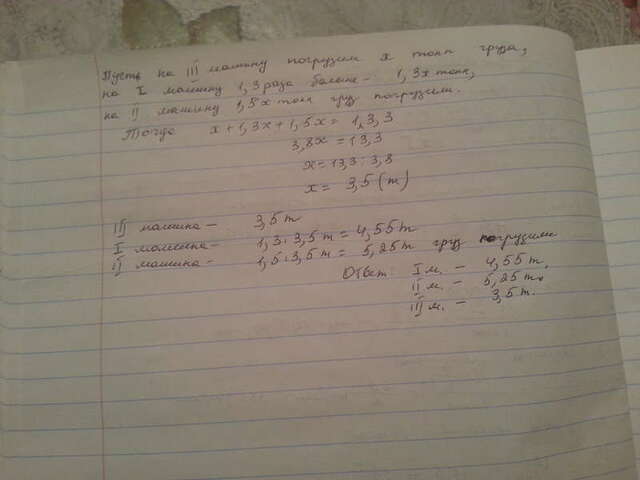 Пусть на III машину погрузим х тонн груза,
на I машину 1,3 раза больше - 1,3х тонн,
на II машину 1,5х тонн груз погрузим.
Тогда х + 1,3х + 1,5х = 13,3
3,8х = 13,3
х = 13,3 : 3,8
х = 3,5 (т)
III машина - 3,5 т
I машина - 1,3 · 3,5 т = 4,55 т
II машина - 1,5 · 3,5 т = 5,25 т груз погрузили
Ответ: I м. - 4,55 т.
II м. - 5,25 т.
III м. - 3,5 т.